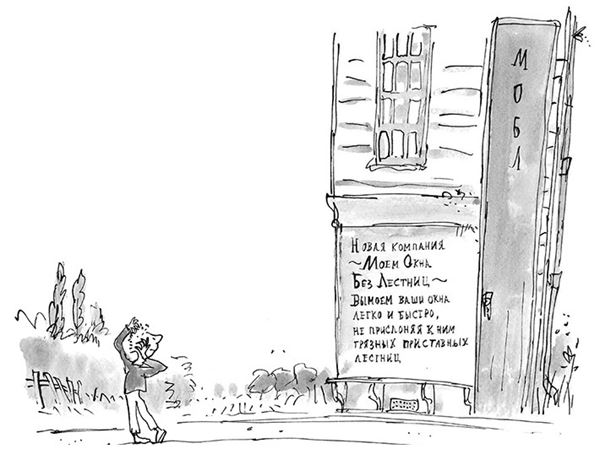 МОБЛ
Новая компания
~ Моем Окна
Без Лестниц ~
Вымоем ваши окна
легко и быстро,
не прислоняя к ним
грязных приставных
лестниц